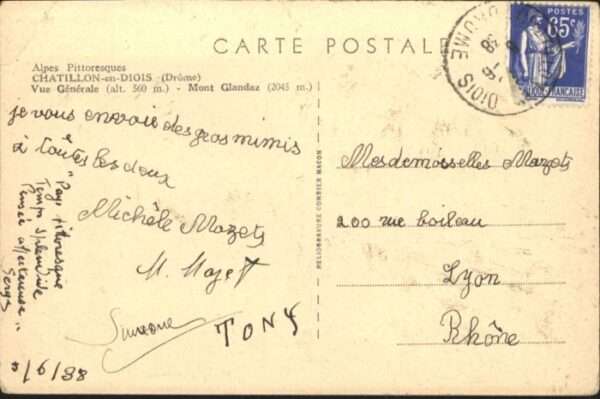 CARTE POSTALE
Alpes Pittoresques
CHATILLON-en-DIOIS (Drôme)
Vue Générale (alt. 560 m.) - Mont Glandaz (2045 m.)
je vous envoie des gros mimis
à toutes les deux
Michèle Mazets
M. Mazet
Simone
TONY
"Pays pittoresque
Temps splendide
Pensée affectueuse"
Serge
/6/38
HELIOGRAVURE COMBIER MACON
POSTES
65c
DIOIS
DROME
38
Mesdemoiselles Mazets
200 rue boileau
Lyon
Rhône